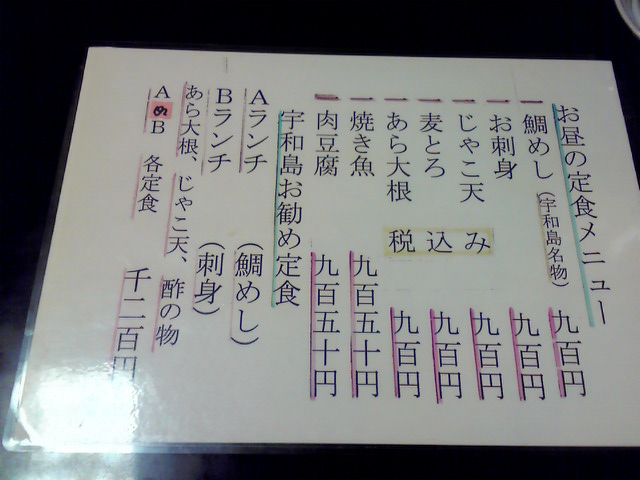 お昼の定食メニュー
一 鯛めし(宇和島名物) 九百円
一 お刺身 九百円
一 じゃこ天 九百円
一 麦とろ 九百円
一 あら大根 九百円
税込み
一 焼き魚 九百五十円
一 肉豆腐 九百五十円
宇和島お勧め定食
Aランチ (鯛めし)
Bランチ (刺身)
あら大根、じゃこ天、酢の物
A B 各定食 千二百円